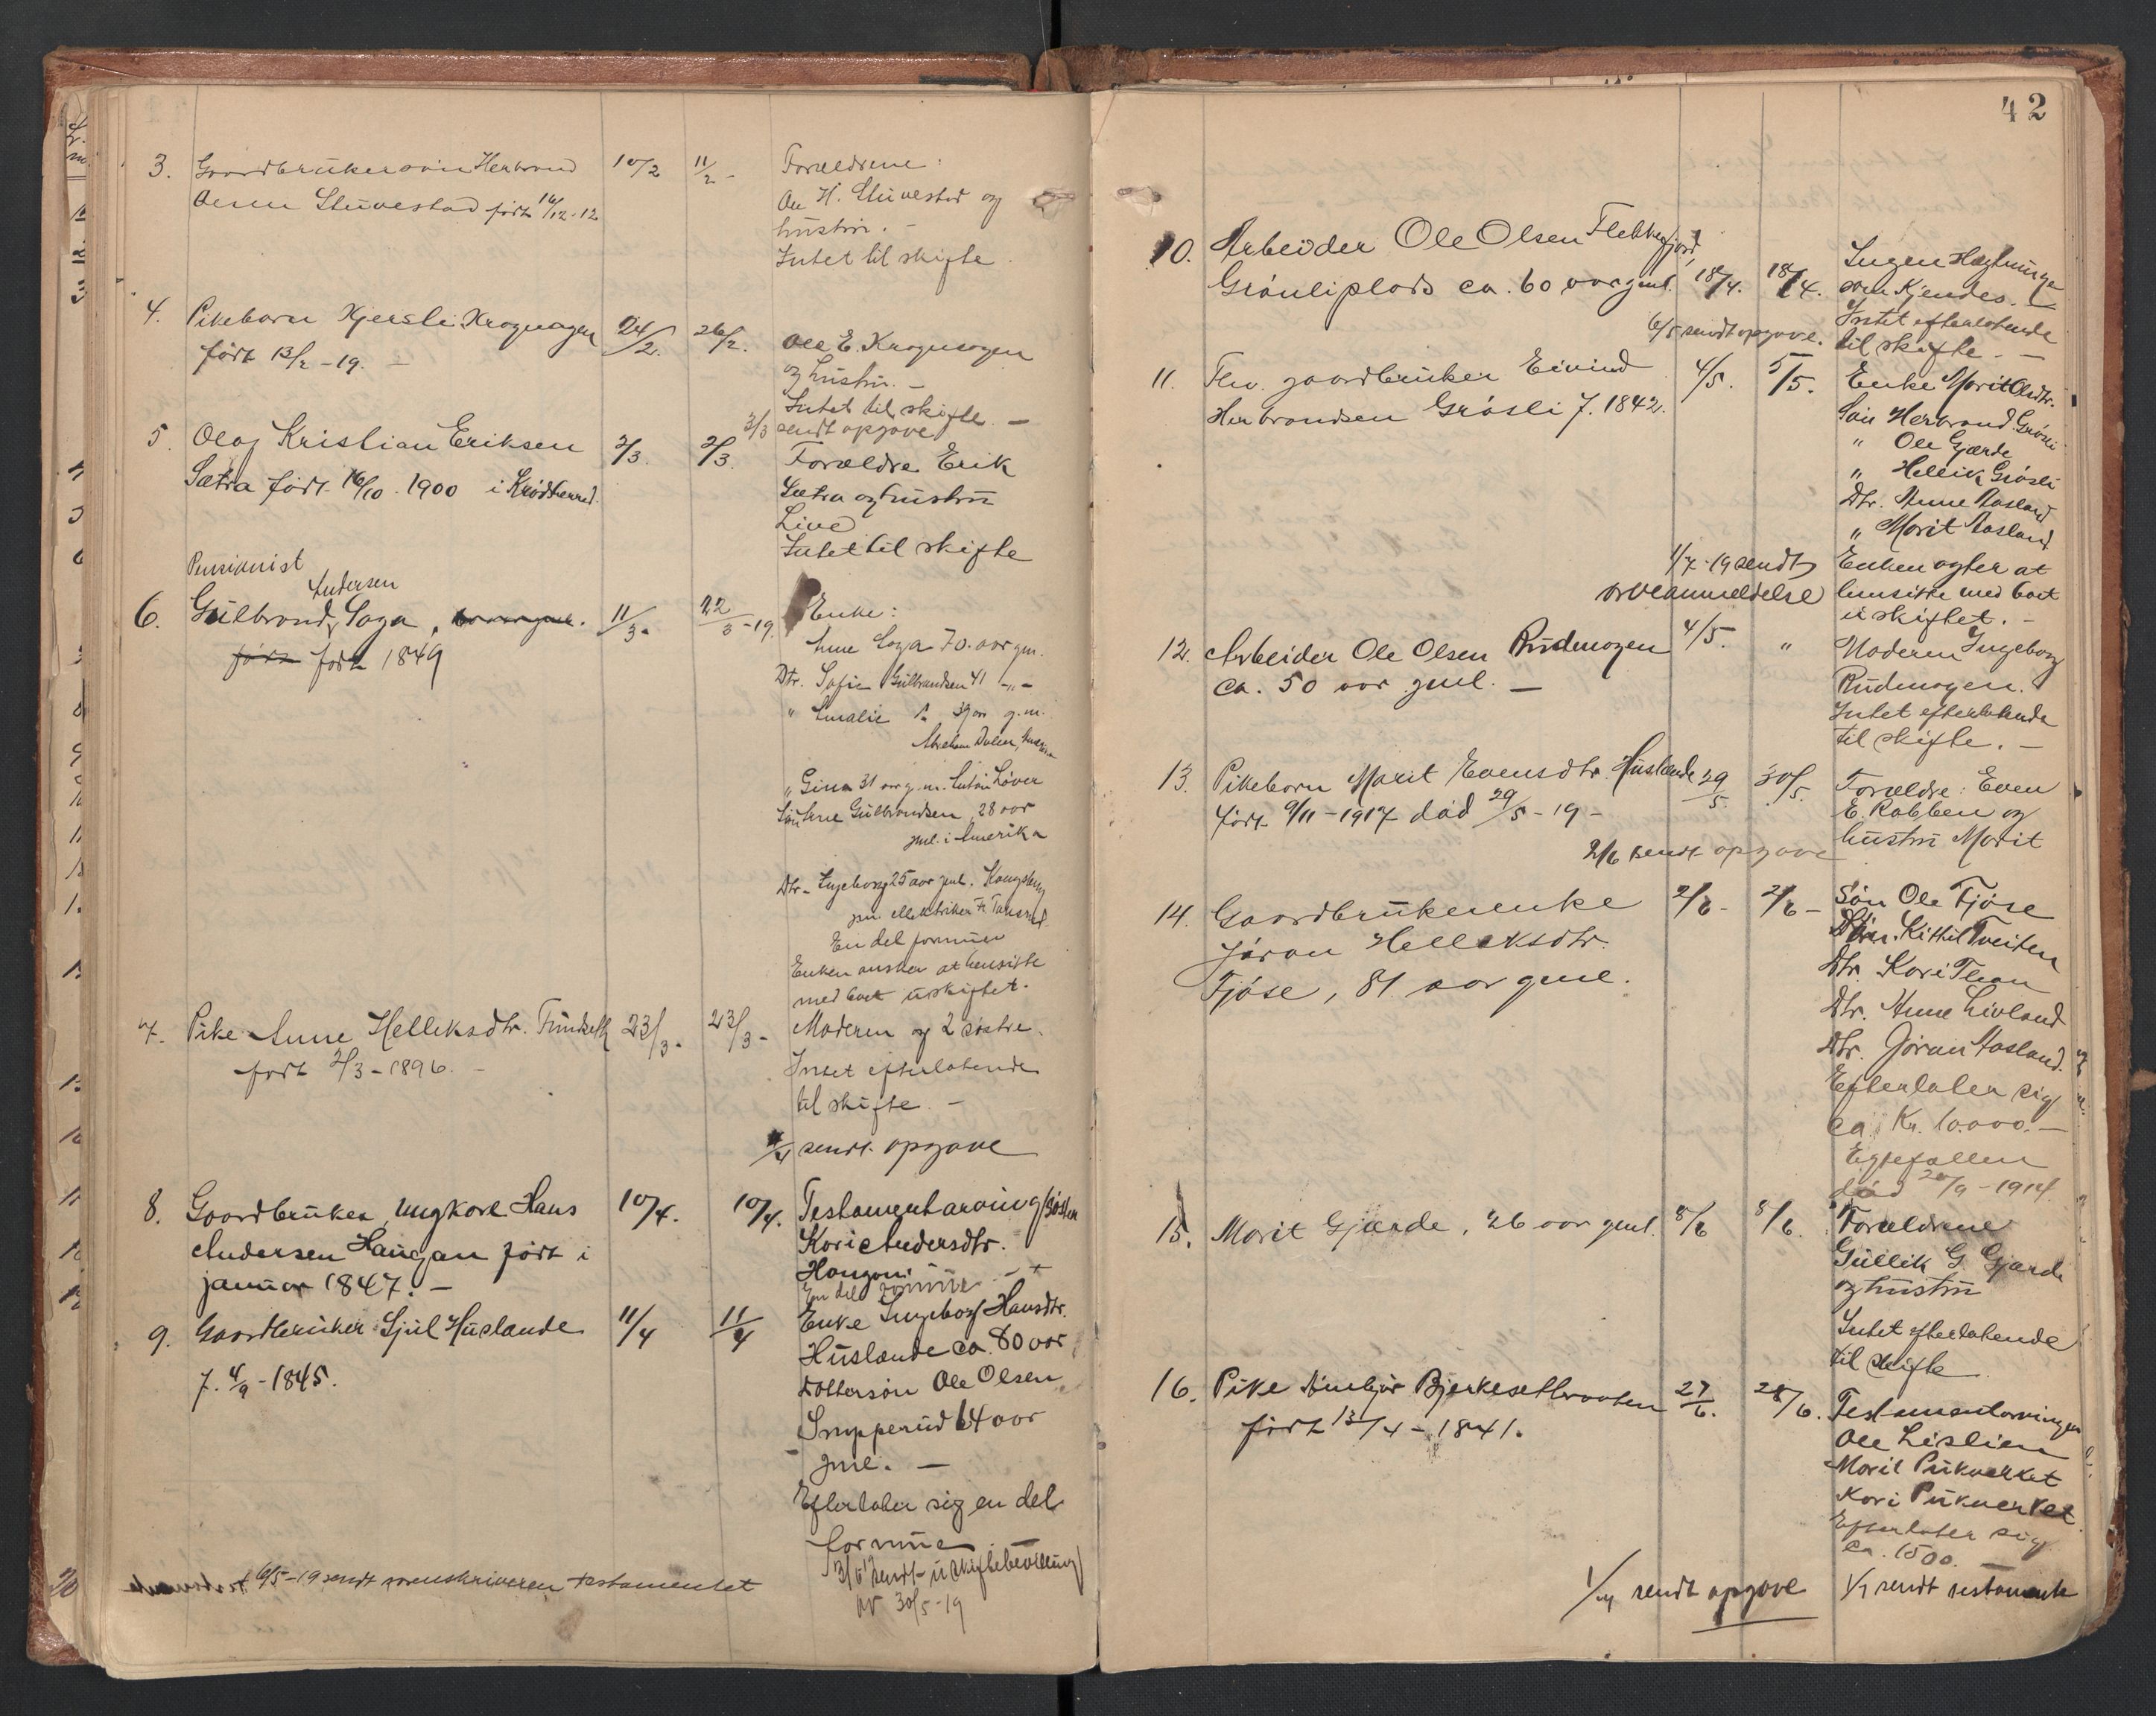 3. Gaardbrukersøn Herbrand
Olesen Stuvestad født 16/12-12
10/2
11/2 -
Forældrene:
Ole H. Stuvestad og
hustru. -
Intet til skifte.
4. Pikebarn Kjersti Krogmogen
født 13/2 - 19. -
24/2.
26/2.
Ole E. Krogmogen
og hustru. -
Intet til skifte. -
3/3 sendt opgave
5. Olaf Kristian Eriksen
Sætra født 16/10. 1900 i Krødsherred.
2/3.
2/3.
Forældre Erik
Sætra og hustru
Live
Intet til skifte
Pensionist
Andersen
6. Gulbrand Laga,
født født 1849
11/3.
22/3-19.
Enke:
Anne Laga 70. aar gm.
Dtr. Sofie Gulbrandsen 41 -"-
" Amalie 39 aar g.m.
Abraham Dalen,
" Gina 31 aar g.m. Anton Løver
Søn Arne Gulbrandsen, 28 aar
gml. i Amerika
Dtr. Ingeborg 25 aar gml. Kongsberg
gm. elektriker
En del formue
Enken ønsker at hensitte
med boet uskiftet.
7. Pike Anne Helleksdtr. Funkelh
født 2/3 - 1896. -
23/3.
23/3 -
Moderen og 2 søstre.
Intet efterlatende
til skifte. -
/4 sendt opgave
8. Gaardbruker, Ungkarl Hans
Andersen Haugan født i
januar 1847. -
10/4.
10/4.
Testamentarving søster
Kari Andersdtr.
Haugan.
En del formue
9. Gaardbruker Sjul Huslænde
f. 4/9 - 1845.
11/4
11/4
Enke Ingeborg Hansdtr.
Huslænde ca. 80 aar
Dattersøn Ole Olsen
Snipperud 14 aar
gml. -
Efterlater sig en del
formue -
13/5 19 sendt uskiftebevilling
av 30/5-19
6/5-19 sendt sorenskriveren testamentet
42
10. Arbeider Ole Olsen Flekkefjord,
Grønliplads ca. 60 aar gml.
18/4.
18/4.
Ingen slegtninge
som kjendes.
Intet efterlatende
til skifte. -
6/5 sendt opgave.
11. Fhv. gaardbruker Eivind
Herbrandsen Grøsli f. 1842.
4/5.
5/5.
Enke Marit Olsdtr.
Søn Herbrand Grøsli
" Ole Gjærde
" Hellik Grøsli
Dtr. Anne Aasland
" Marit Aasland
Enken agter at
hensitte med boet
uskiftet. -
1/7-19 sendt
arveanmeldelse
12. Arbeider Ole Olsen Rudmogen
ca. 50 aar gml. -
4/5.
"
Moderen Ingeborg
Rudmogen.
Intet efterlatende
til skifte. -
13. Pikebarn Marit Evensdtr. Huslænde
født 9/11 - 1917 død 29/5 - 19 -
29/5.
30/5.
Forældre: Even
E. Rabben og
hustru Marit
2/6 sendt opgave
14. Gaardbrukerenke
Jøran Helleksdtr.
Fjøse, 81 aar gml.
2/6 -
2/6 -
Søn Ole Fjøse
Kittil Tveiten
Dtr. Kari Thon
Dtr. Anne Livland
Dtr. Jøran Aasland.
Efterlater sig
ca. Kr. 10.000. -
Egtefællen
død 20/9 - 1914.
15. Marit Gjærde, 26 aar gml.
8/6
8/6.
Forældrene
Gullik G. Gjærde
og hustru
Intet efterlatende
til skifte
16. Pike Ambjør Bjerkesetbraaten
født 13/4 - 1841.
27/6.
28/6.
Testamentarvinger
Ole Lislien
Marit Pukverket
Kari Pukverket
Efterlater sig
ca. 1500. -
1/7 sendt opgave
1/7 sendt testamente